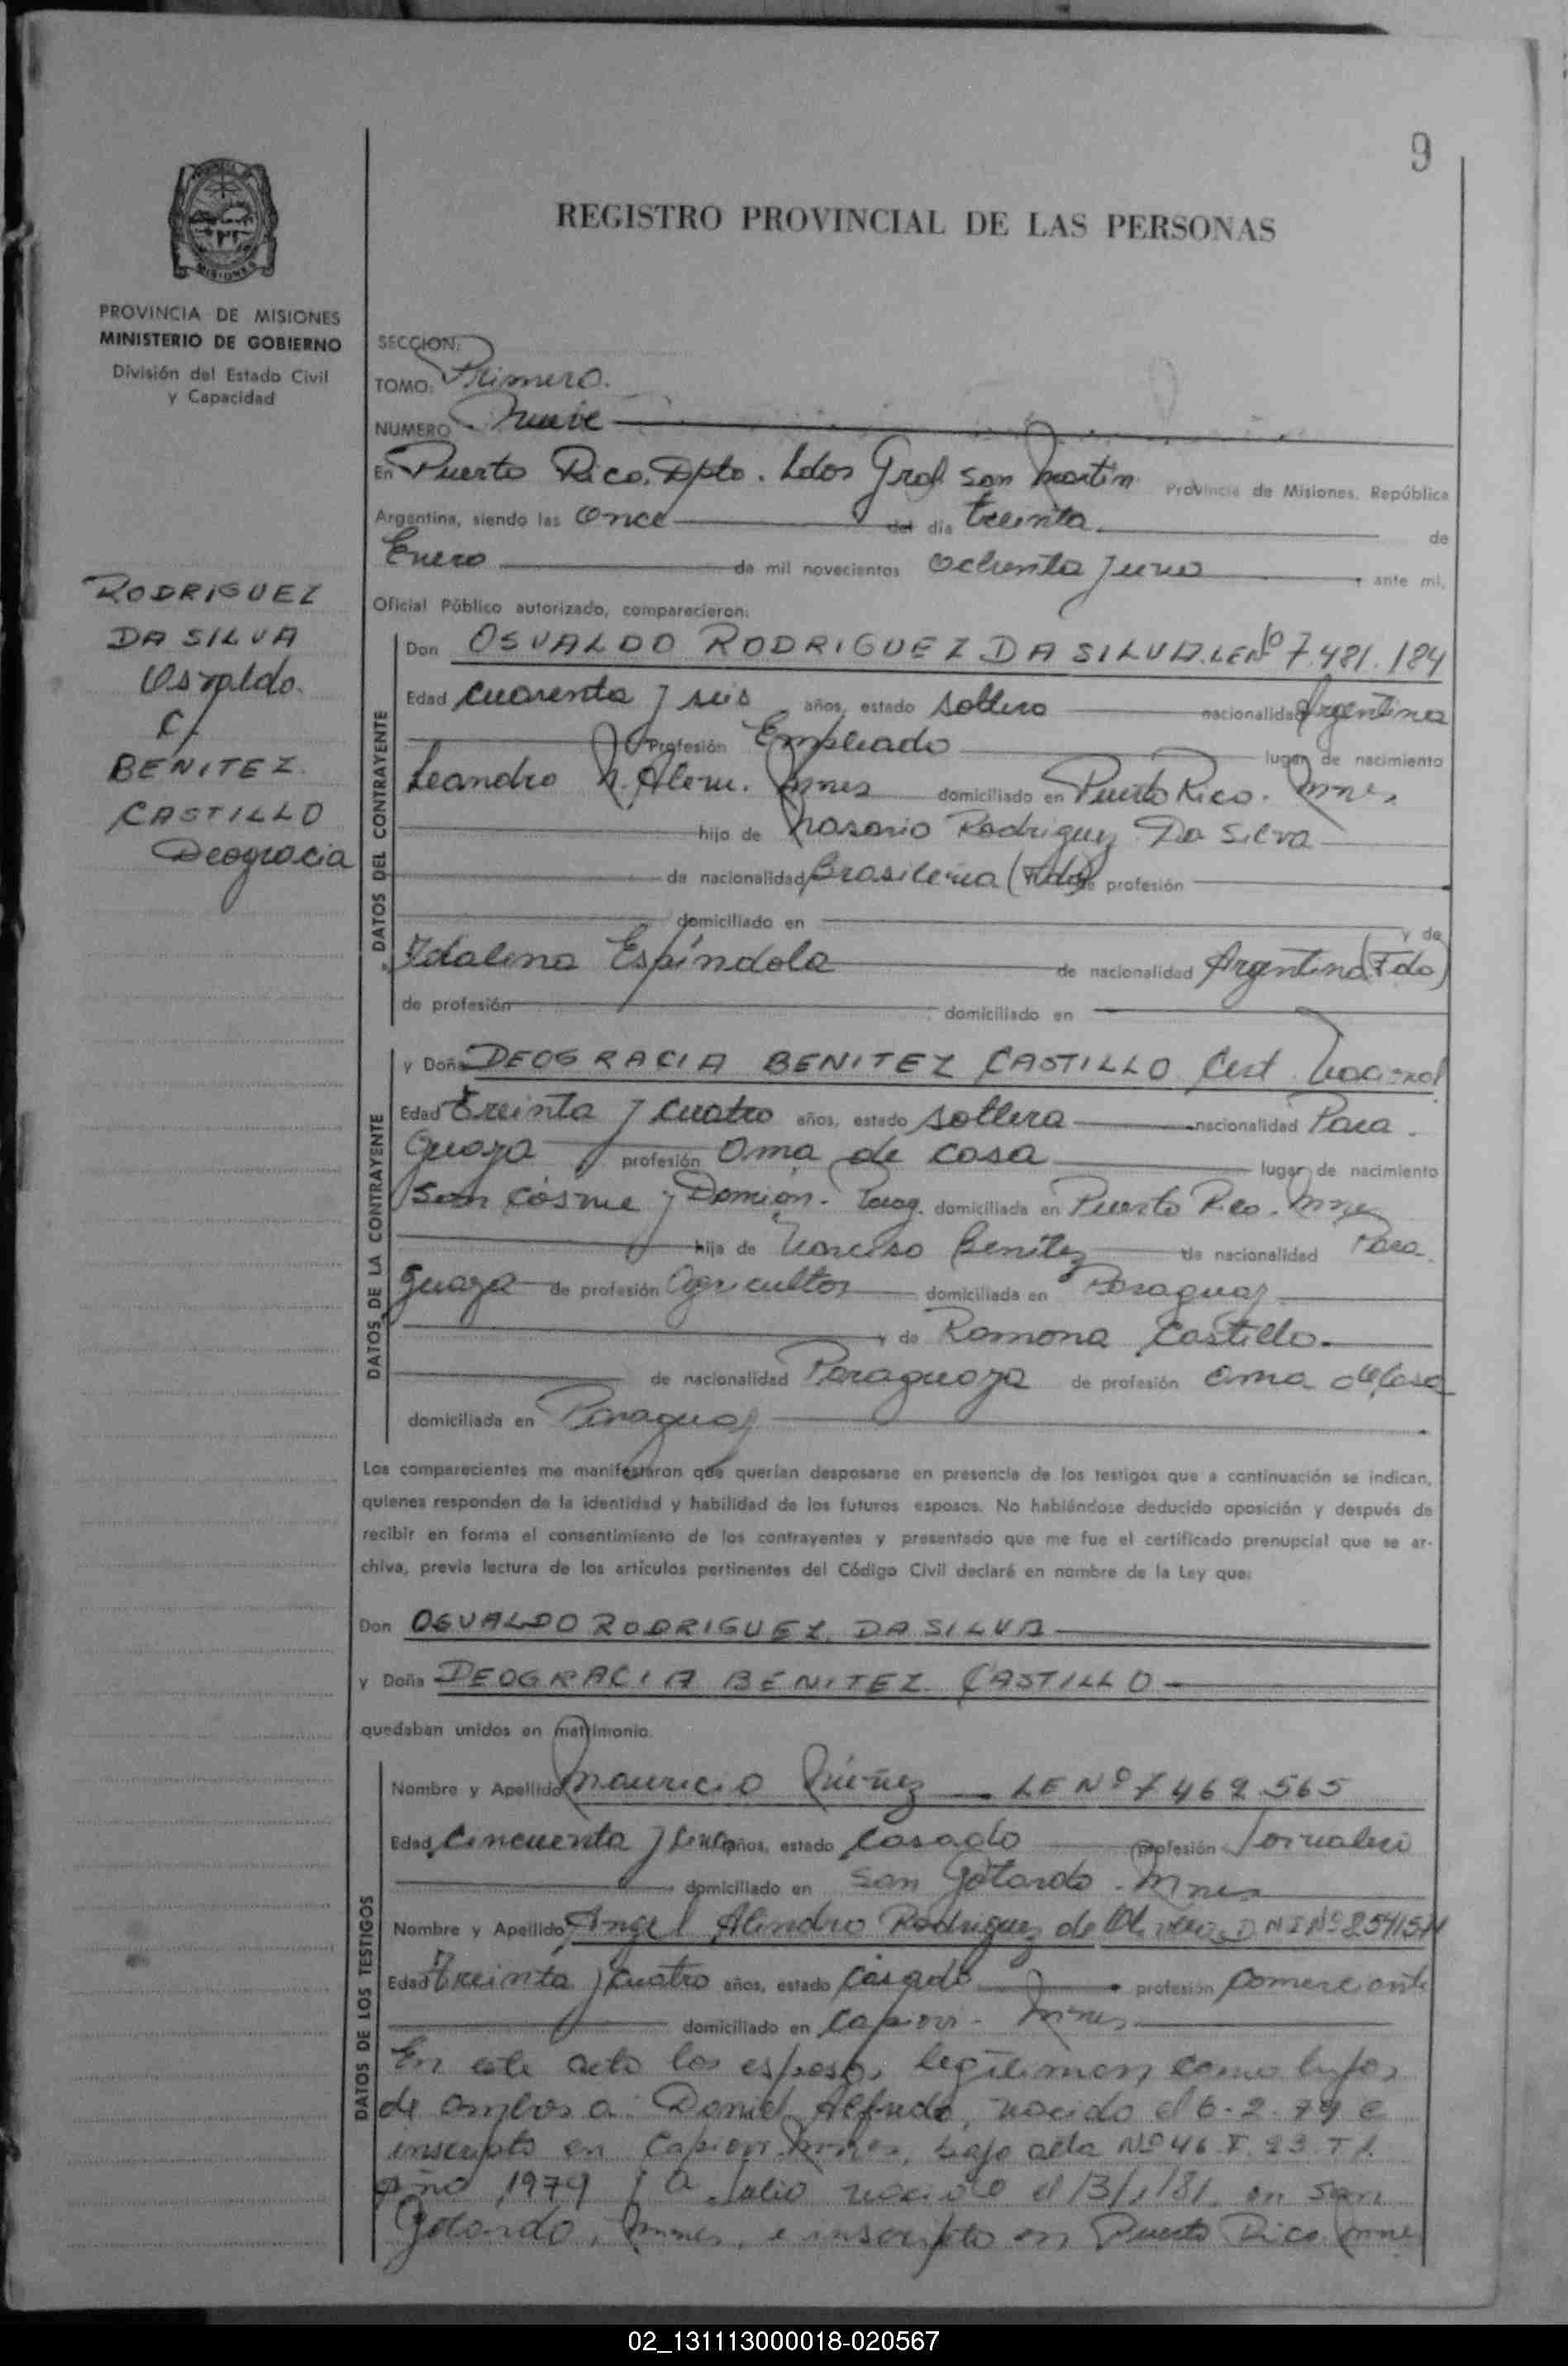 9
REGISTRO PROVINCIAL DE LAS PERSONAS
PROVINCIA DE MISIONES
MINISTERIO DE GOBIERNO
División del Estado Civil
y Capacidad
RODRIGUEZ
DA SILVA
Osvaldo.
C/
BENITEZ
CASTILLO
Deogracia
SECCION:
TOMO: Primero.
NUMERO Nueve
En Puerto Rico, Dpto. Ldor Gral San Martin Provincia de Misiones, República
Argentina, siendo las Once del dia treinta de
Enero de mil novecientos Ochenta y uno, ante mi,
Oficial Público autorizado, comparecieron:
DATOS DEL CONTRAYENTE
Don OSVALDO RODRIGUEZ DA SILVA. LE Nº 7.481.184
Edad cuarenta y seis años, estado soltero nacionalidad Argentina
Profesión Empleado lugar de nacimiento
Leandro N. Alem. Mnes domiciliado en Puerto Rico. Mnes
hijo de Nasario Rodriguez Da Silva
de nacionalidad Brasileña (Fdo) de profesión
domiciliado en y de
Idalina Espíndola de nacionalidad Argentina (Fdo)
de profesión domiciliado en
DATOS DE LA CONTRAYENTE
y Doña DEOGRACIA BENITEZ CASTILLO Cert Nacional
Edad treinta y cuatro años, estado soltera nacionalidad Para
guaya profesión Ama de casa lugar de nacimiento
San Cosme y Damián. Parag. domiciliada en Puerto Rico. Mnes
hija de Narciso Benitez de nacionalidad Para
guaya de profesión Agricultor domiciliada en Paraguay
y de Ramona Castillo
de nacionalidad Paraguaya de profesión ama de casa
domiciliada en Paraguay
Los comparecientes me manifestaron que querían desposarse en presencia de los testigos que a continuación se indican,
quienes responden de la identidad y habilidad de los futuros esposos. No habiéndose deducido oposición y después de
recibir en forma el consentimiento de los contrayentes y presentado que me fue el certificado prenupcial que se ar-
chiva, previa lectura de los artículos pertinentes del Código Civil declaré en nombre de la Ley que:
Don OSVALDO RODRIGUEZ DA SILVA
y Doña DEOGRACIA BENITEZ CASTILLO
quedaban unidos en matrimonio.
DATOS DE LOS TESTIGOS
Nombre y Apellido Mauricio Nuñez LE Nº 7 462 565
Edad Cincuenta y cinco años, estado Casado profesión Jornalero
domiciliado en San Gotardo. Mnes
Nombre y Apellido Angel Alindro Rodriguez de DNI Nº
Edad treinta y cuatro años, estado Casado profesión comerciante
domiciliado en Capiovi. Mnes
En este acto los esposos legitiman como hijos
de ambos a: Daniel Alfredo, nacido el 6-2-79 e
inscripto en Capiovi Mnes, bajo acta Nº 46 F. 23 T 1.
Año 1979 y a Julio nacido el 13/1/81, en San
Gotardo, Mnes, e inscripto en Puerto Rico Mnes
02_131113000018-020567